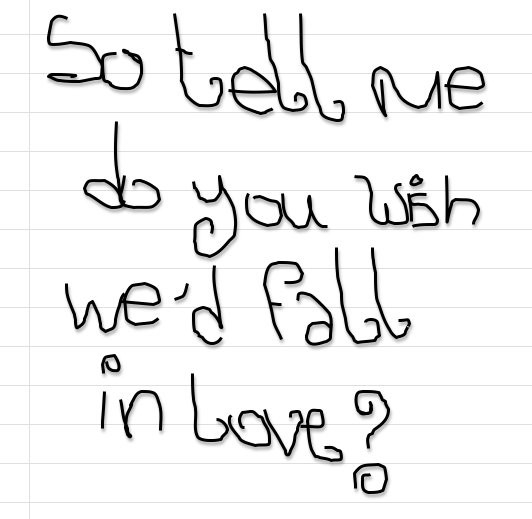 So tell me
do you wish
we'd fall
in love?